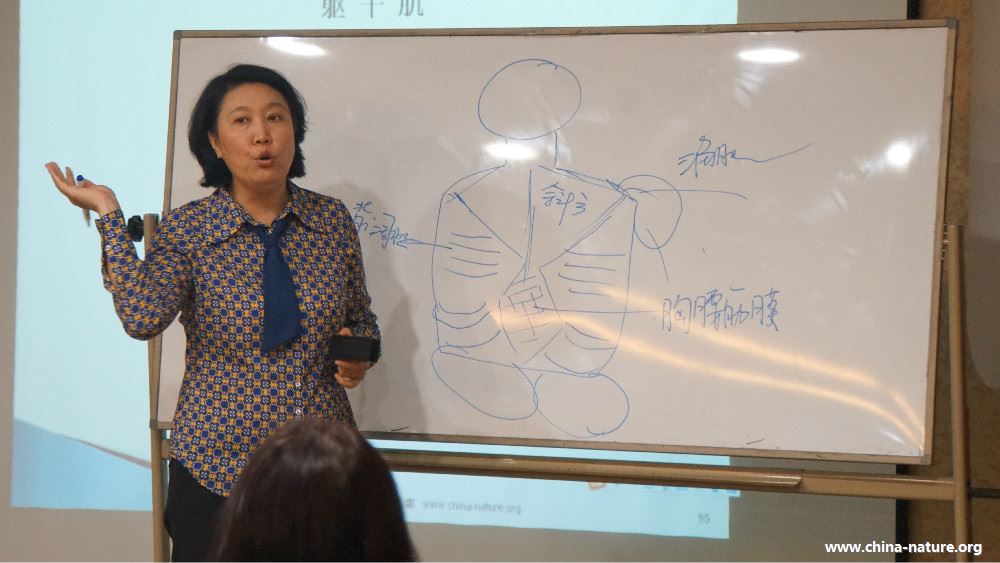 躯干肌
斜方
背阔肌
胸腰筋膜
www.china-nature.org
95
www.china-nature.org